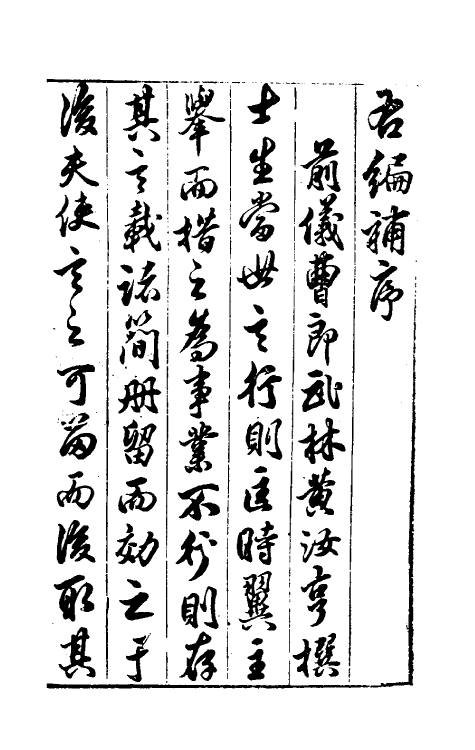 吾編補序
前儀曹郎武林黃汝亨撰
士生當世言行則匡時翼主
舉而措之為事業不行則存
其言載諸簡册留而効之于
後夫使言之可留而後取其